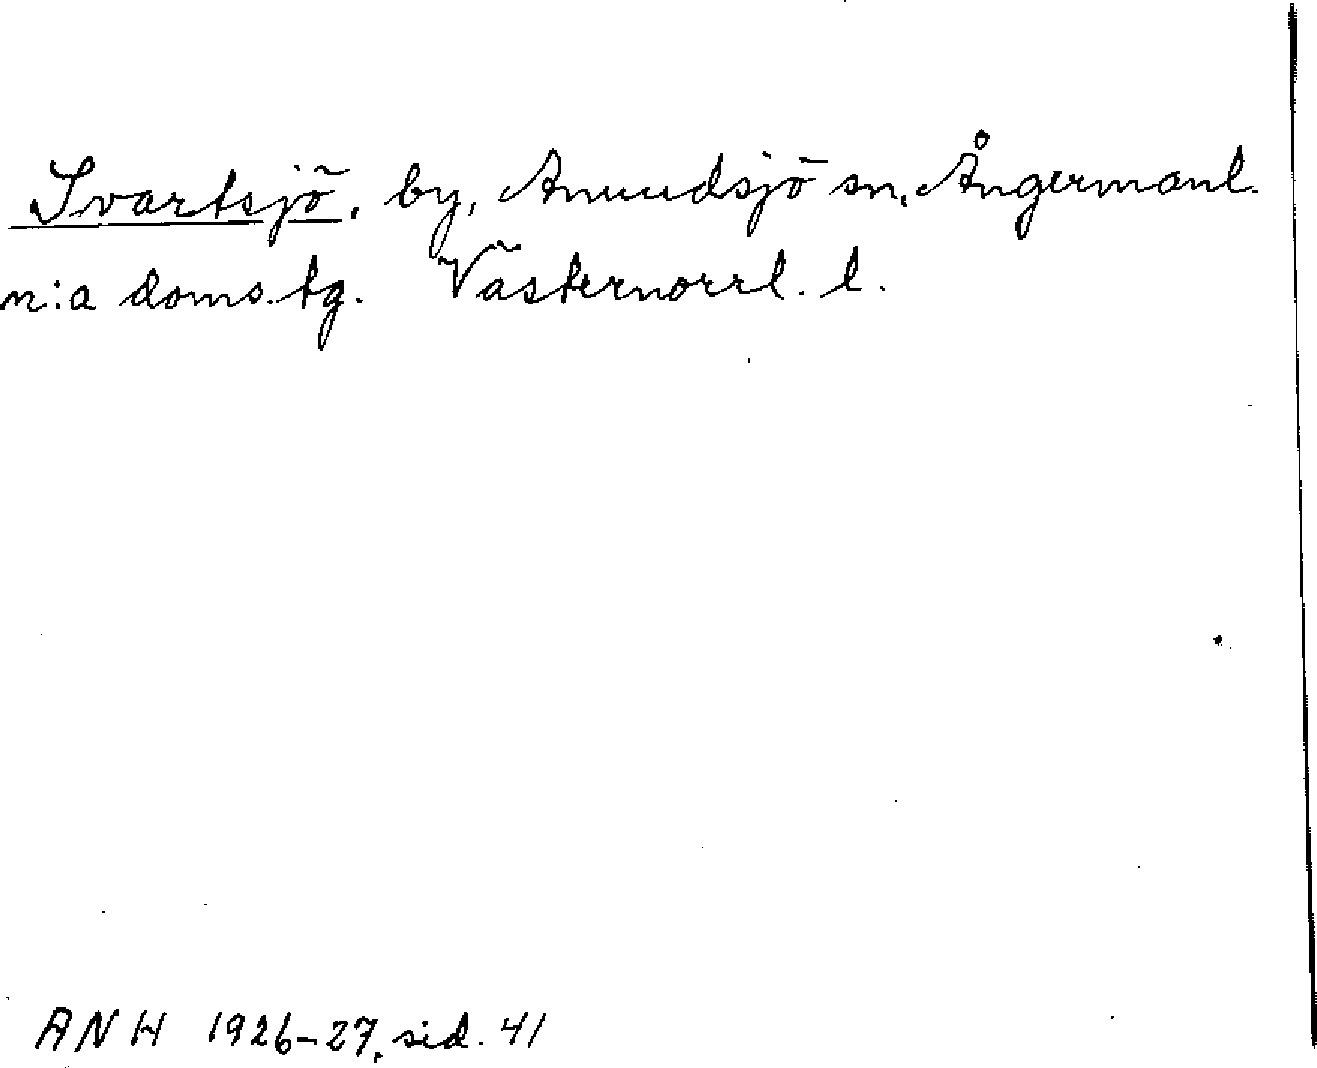 Svartsjö, by, Anundsjö sn, Ångermanl.
n:a doms.tg. Västernorrl. l.
ANH 1926-27, sid. 41